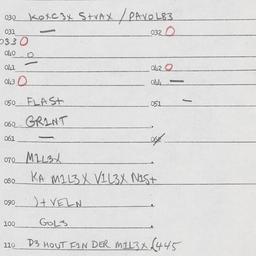 030 KOXC3X S+VAX / PAVOL83
031 — 032 O
033 O
040 O
041 — 042 O
043 O 044 —
050 FLAS+ 051 —
060 GR1NT
061 —
070 M1L3X
080 KA M1L3X V1L3X N1S+
090 )+ VELN
100 GOL3
110 D3 HOUT F1N DER M1L3X £445